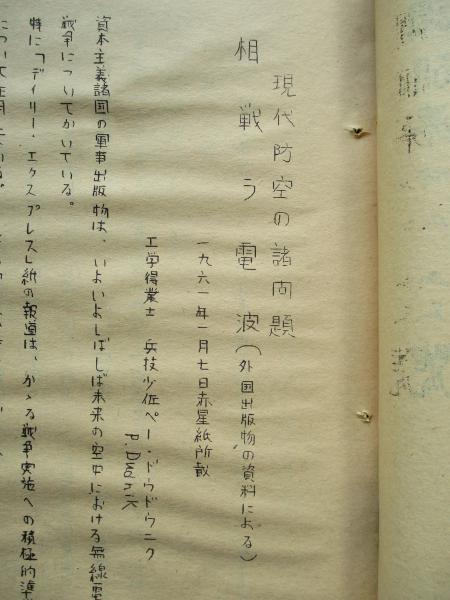 現代防空の諸問題
相戦う電波(外国出版物の資料による)
一九六一年一月七日赤星紙所載
工学得業士 兵技少佐ペー・ドゥドゥニク
資本主義諸国の軍事出版物は、いよいよしばしば未来の空中における無線電
戦争についてかいている。
特に「デイリー・エクスプレス」紙の報道は、かゝる戦争実施への積極的準